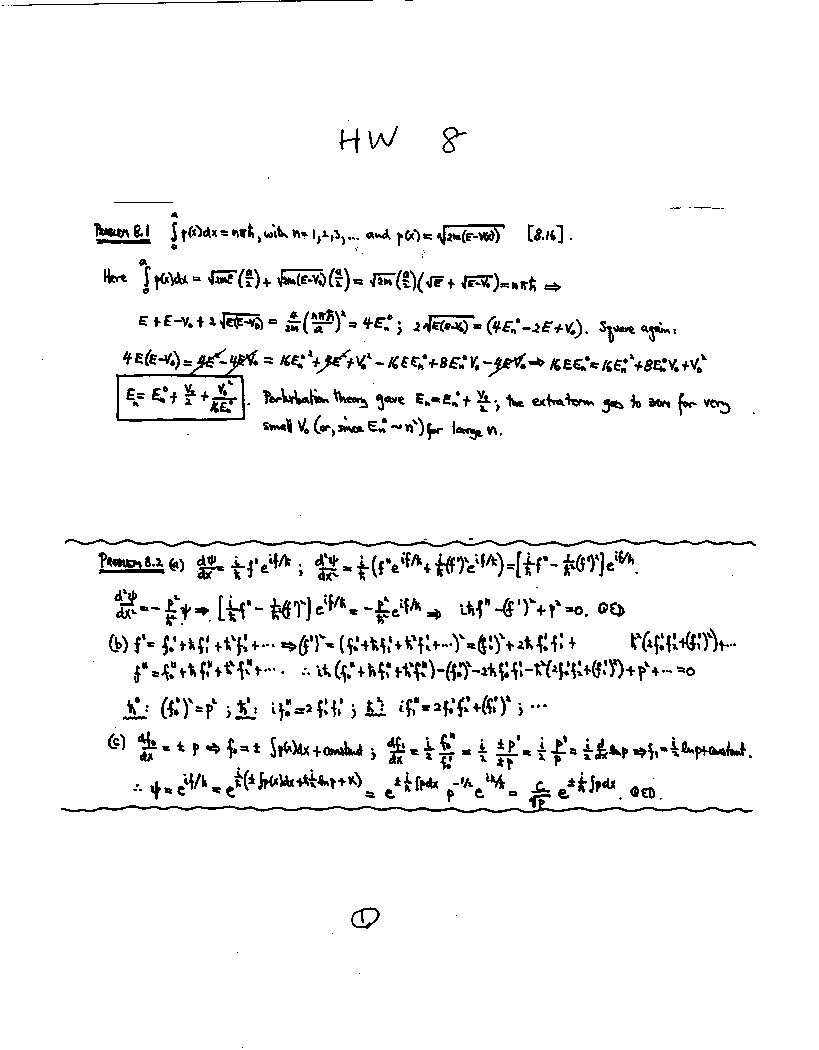 HW 8
Problem 8.1 ∫₀ᵃ p(x)dx = nπħ, with n = 1,2,3,... and p(x) = √(2m(E-V(x))) [8.16].
Here ∫₀ᵃ p(x)dx = √(2mE) (a/2) + √(2m(E-V₀)) (a/2) = √(2m) (a/2)(√E + √(E-V₀)) = nπħ ⇒
E + E-V₀ + 2√(E(E-V₀)) = 4/2m (nπħ/a)² = 4Eₙ⁰ ; 2√(E(E-V₀)) = (4Eₙ⁰ - 2E + V₀). Square again:
4E(E-V₀) = 4E² - 4EV₀ = 16Eₙ⁰² + 4E² + V₀² - 16EEₙ⁰ + 8Eₙ⁰V₀ - 4EV₀ ⇒ 16EEₙ⁰ = 16Eₙ⁰² + 8Eₙ⁰V₀ + V₀²
Eₙ = Eₙ⁰ + V₀/2 + V₀²/16Eₙ⁰ . Perturbation theory gave Eₙ = Eₙ⁰ + V₀/2 ; the extra term goes to zero for very
small V₀ (or, since Eₙ⁰ ~ n²) for large n.
Problem 8.2 (a) dψ/dx = i/ħ f' e^(if/ħ) ; d²ψ/dx² = i/ħ (f'' e^(if/ħ) + i/ħ (f')² e^(if/ħ)) = [i/ħ f'' - 1/ħ² (f')²] e^(if/ħ).
d²ψ/dx² = - p²/ħ² ψ ⇒ [i/ħ f'' - 1/ħ² (f')²] e^(if/ħ) = - p²/ħ² e^(if/ħ) ⇒ iħf'' - (f')² + p² = 0. QED
(b) f' = f₀' + ħf₁' + ħ²f₂' + ··· ⇒ (f')² = (f₀' + ħf₁' + ħ²f₂' + ···)² = (f₀')² + 2ħf₀'f₁' + ħ²(2f₀'f₂' + (f₁')²) + ···
f'' = f₀'' + ħf₁'' + ħ²f₂'' + ··· . ∴ iħ(f₀'' + ħf₁'' + ħ²f₂'') - (f₀')² - 2ħf₀'f₁' - ħ²(2f₀'f₂' + (f₁')²) + p² + ··· = 0
ħ⁰: (f₀')² = p² ; ħ¹: if₀'' = 2f₀'f₁' ; ħ²: if₁'' = 2f₀'f₂' + (f₁')² ; ···
(c) df₀/dx = ± p ⇒ f₀ = ± ∫p(x)dx + constant ; df₁/dx = i/2 f₀''/f₀' = i/2 ±p'/±p = i/2 p'/p = i/2 d/dx ln p ⇒ f₁ = i/2 ln p + constant.
∴ ψ = e^(if/ħ) = e^(i/ħ (± ∫p(x)dx + ħ i/2 ln p + K)) = e^(± i/ħ ∫pdx) p^(-1/2) e^(iK/ħ) = C/√p e^(± i/ħ ∫pdx). QED.
①